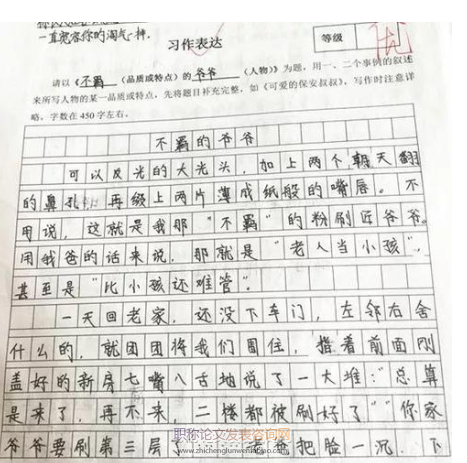 一直宽容你的淘气一样.
习作表达
等级
优
请以《不羁（品质或特点）的爷爷（人物）》为题，用一、二个事例的叙述
来所写人物的某一品质或特点，先将题目补充完整，如《可爱的保安叔叔》，写作时注意详
略，字数在450字左右。
不羁的爷爷
可以反光的大光头，加上两个朝天翻
的鼻孔，再缀上两片薄成纸般的嘴唇。不
用说，这就是我那“不羁”的粉刷匠爷爷。
用我爸的话来说，那就是“老人当小孩”
甚至是“比小孩还难管”。
一天回老家，还没下车门，左邻右舍
什么的，就团团将我们围住，指着前面刚
盖好的新房七嘴八舌地说了一大堆：“总算
是来了，再不来，二楼都被刷好了”“你家
爷爷要刷第三层了”老爸把脸一沉，下
职称论文发表咨询网
www.zhichenglunwenfabiao.com